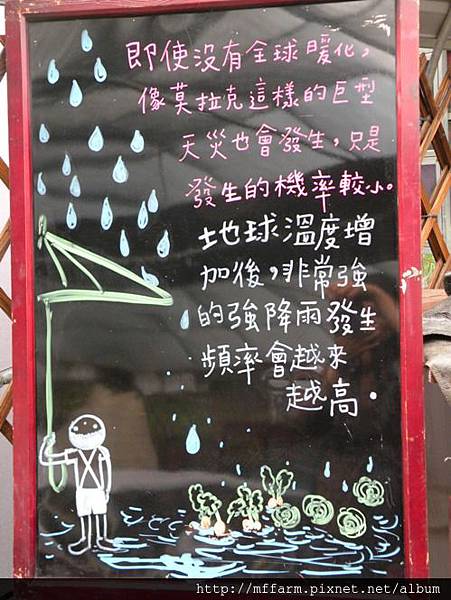 即使沒有全球暖化，
像莫拉克這樣的巨型
天災也會發生，只是
發生的機率較小。
地球溫度增
加後，非常強
的強降雨發生
頻率會越來
越高。
http://mffarm.pixnet.net/album